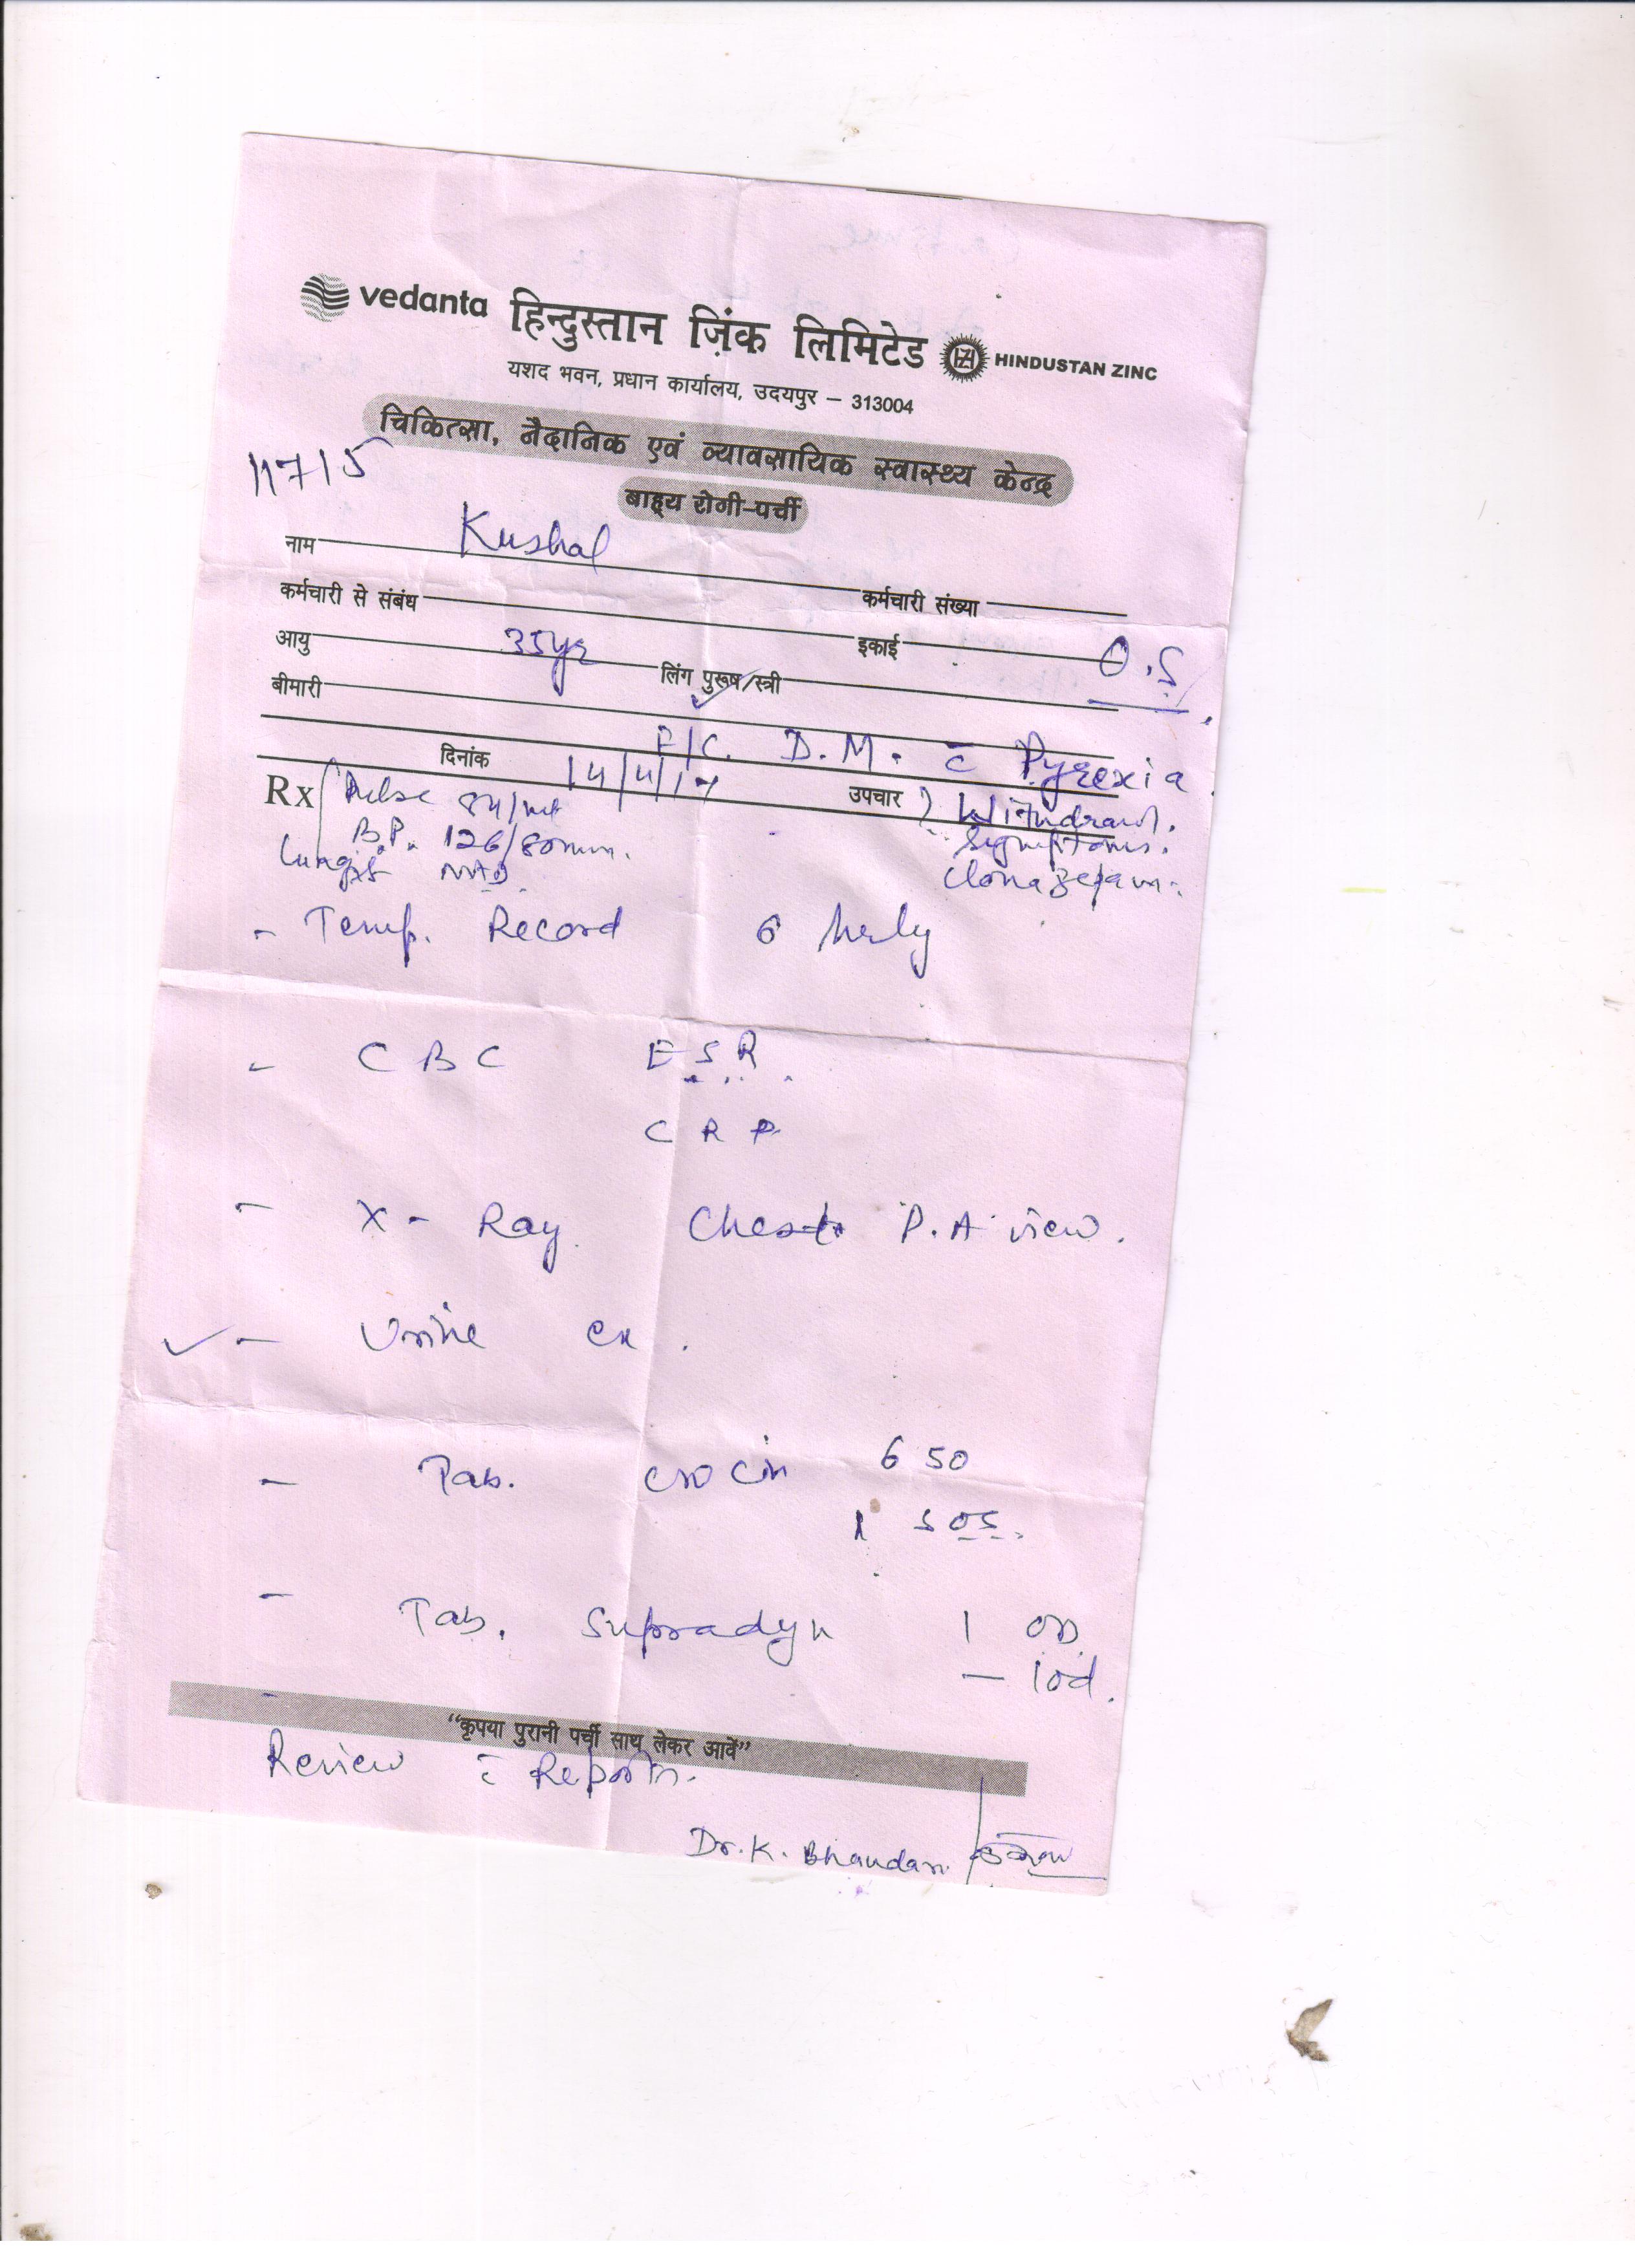 vedanta हिन्दुस्तान ज़िंक लिमिटेड HINDUSTAN ZINC
यशद भवन, प्रधान कार्यालय, उदयपुर – 313004
चिकित्सा, नैदानिक एवं व्यावसायिक स्वास्थ्य केन्द्र
11715
बाह्य रोगी-पर्ची
नाम Kushal
कर्मचारी से संबंध कर्मचारी संख्या
आयु 35yr इकाई O.S
बीमारी लिंग पुरूष/स्त्री
F/C. D.M. c̄ Pyrexia
दिनांक 14/4/17 उपचार ? Withdrawl.
Symptoms.
Clonazepam.
Rx Pulse 84/mt
B.P. 126/80mm.
Lungs NAD.
- Temp. Record 6 hrly
- CBC ESR.
CRP
- X-Ray Chest P.A view.
- Urine ex.
- Tab. crocin 650
1 SOS.
- Tab. Supradyn 1 OD
- 10d.
"कृपया पुरानी पर्ची साथ लेकर आवें"
Review c̄ Reports.
Dr. K. Bhandari